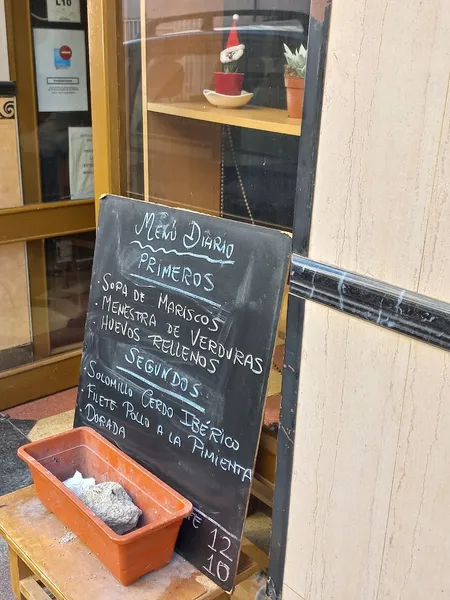 Menú Diario
Primeros
Sopa de Mariscos
· Menestra de Verduras
Huevos Rellenos
Segundos
· Solomillo Cerdo Ibérico
· Filete Pollo a la Pimienta
· Dorada
12
10